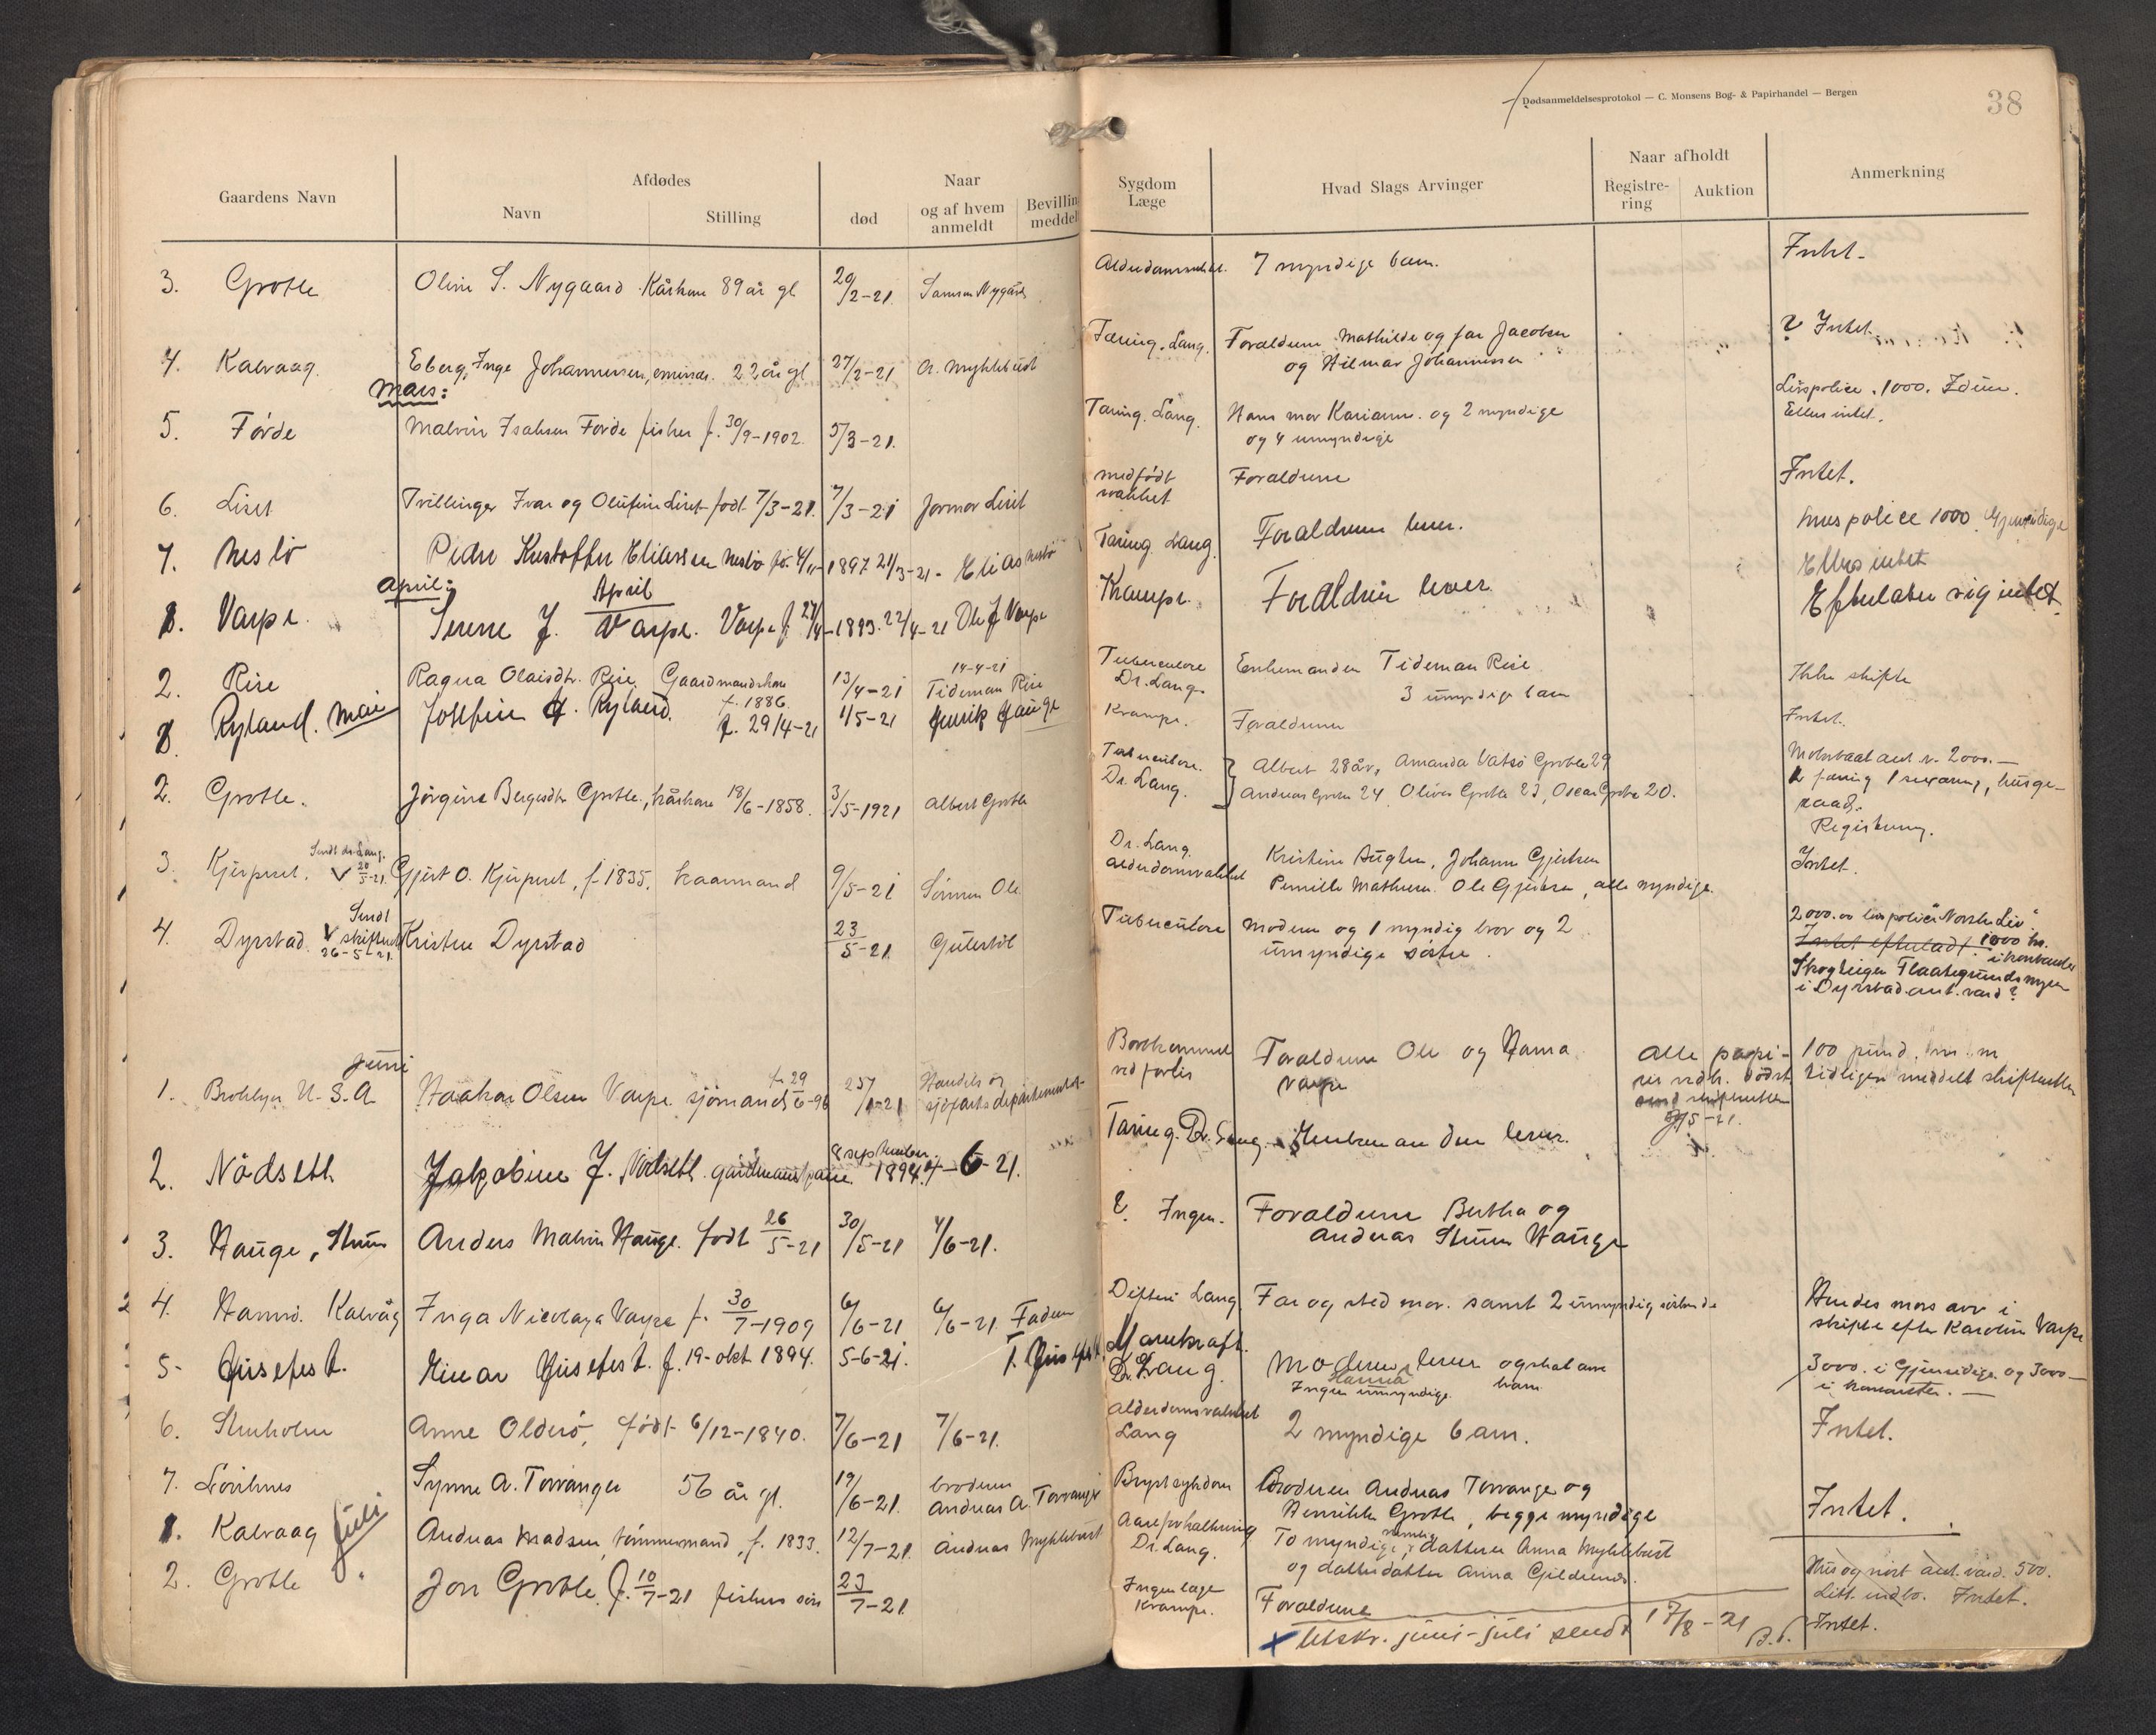 Dødsanmeldelsesprotokol — C. Monsens Bog- & Papirhandel — Bergen
38
Gaardens Navn
Afdødes
Navn
Stilling
død
Naar
og af hvem anmeldt
Bevillin meddel
Sygdom
Læge
Hvad Slags Arvinger
Naar afholdt
Registre-
ring
Auktion
Anmerkning
3. Grotle Oline S. Nygaard Kårkone 89 år gl 20/2-21 Samson Nygård 7 myndige barn. Intet.
4. Kalvaag. Eberg Inge Johannessen, 22 år gl 27/2-21 A. Myklebust Tæring. Lang. Forældrene Mathilde og far Jacobsen
og Hilmar Johannessen ? Intet.
Mars:
5. Førde Malvin Isaksen Førde fisker f. 30/9-1902. 5/3-21. Tæring. Lang. Hans mor Karianne. og 2 myndige
og 4 umyndige Livspolice. 1000. Idun.
Ellers intet.
6. Liset Tvillinger Ivar og Olufine Liset født 7/3-21. 7/3-21 Jormor Liset medfødt
svakhet Forældrene Intet.
7. Neslø Peder Kristoffer Eliassen Neslø fø. 4/11-1897 21/3-21. Elias Neslø Tæring Lang. Forældrene lever. Livspolice 1000. Gjensidige
Ellers intet
April: April
1. Varpe. Serene J. Varpe. Varpe f. 27/4-1893. 22/4-21 Ole J Varpe Krampe. Forældrene lever Efterlater sig intet.
2. Rise Ragna Olaisdtr. Rise. Gaardmandskone
f. 1886. 13/4-21 14-4-21
Tideman Rise Tuberculose
Dr. Lang. Enkemanden Tideman Rise
3 umyndige barn Ikke skifte
Mai
1. Ryland. Josefine H. Ryland. f. 29/4-21 1/5-21 Henrik Hauge Krampe. Forældrene Intet.
2. Grotle. Jørgine Bergesdtr Grotle., kårkone 18/6-1858. 3/5-1921 Albert Grotle Tuberculose.
Dr. Lang. Albert 28 år, Amanda Vatsø Grotle 29
Andreas Grotle 24, Oliver Grotle 23, Oscar Grotle 20. Motorbaat ant. v. 2000.—
1 færing 1 sexæring, husge-
raad.
Registrering.
3. Kjerpeset. Sendt dr. Lang.
20/5-21. Gjert O. Kjerpeset, f. 1835. kaarmand 9/5-21 Sønnen Ole Dr. Lang.
Alderdomsvakhet Kristine Augton, Johanne Gjertsen
Pernille Mathisen. Ole Gjertsen, alle myndige. Intet.
4. Dyrstad. Sendt
skifteret
26-5-21. Kristen Dyrstad 23/5-21 Gulestøl Tuberculose Moderen og 1 myndig bror og 2
umyndige søstre. 2000.00 livspolice "Norske Liv"
Intet efterladt. 1000 kr.
i kontanter
i Dyrstad ant. værd?
Juni
1. Brooklyn U.S.A Haakon Olsen Varpe sjømand f. 29/6-96 25/1-21 Handels og
sjøfartsdepartementet Bortkommet
ved forlis Forældrene Ole og Hanna
Varpe Alle papi-
rer vedk. dødsf.
send skifteretten
5-21. 100 pund. m.m
tidligere meddelt skifteretten
2. Nødseth Jakobine J. Nødseth gårdmandskone 8 september 1894. 4-6-21. Tæring. Dr. Lang. Enkemanden lever.
3. Hauge, Steine Anders Malvin Hauge. født 26/5-21 30/5-21 4/6-21. ? Ingen. Forældrene Bertha og
Andreas Steinen Hauge
4. Hamnø. Kalvåg Inga Nicolaya Varpe f. 30/7-1909 6/6-21 6/6-21 Faderen Difteri Lang Far og stedmor. samt 2 umyndig søskende Hendes mors arv i
skifte efter Karoline Varpe
5. Husefest. Einar Husefest. f. 19-okt. 1894. 5-6-21. T. Husefest Marekraft.
Dr. Lang. Moderen Hanna lever
Ingen umyndige. 3000. i Gjensidige og 3000—
i kontanter.—
6. Steinholm Anne Olderø, født 6/12-1840. 7/6-21 7/6-21. Alderdomsvakhet
Lang 2 myndige barn. Intet.
7. Lørihnes Synne A. Torvanger 56 år gl. 19/6-21. broderen
Andreas A. Torvanger Brystsykdom Broderen Andreas Torvanger og
Henrikke Grotle, begge myndige Intet.
Juli
1. Kalvaag Andreas Madsen, tømmermand, f. 1833. 12/7-21. Andreas Myklebust Aareforkalkning
Dr. Lang. To myndige, nemlig datteren Anna Myklebust
og datterdatter Anna Gjildrenes. Hus og nøst ant. værd. 500.
Litt indbo. Intet.
2. Grotle Jon Grotle f. 10/7-21 fiskers søn 23/7-21 Ingen læge
Krampe. Forældrene Intet.
Utskr. juni-juli sendt 17/8-21